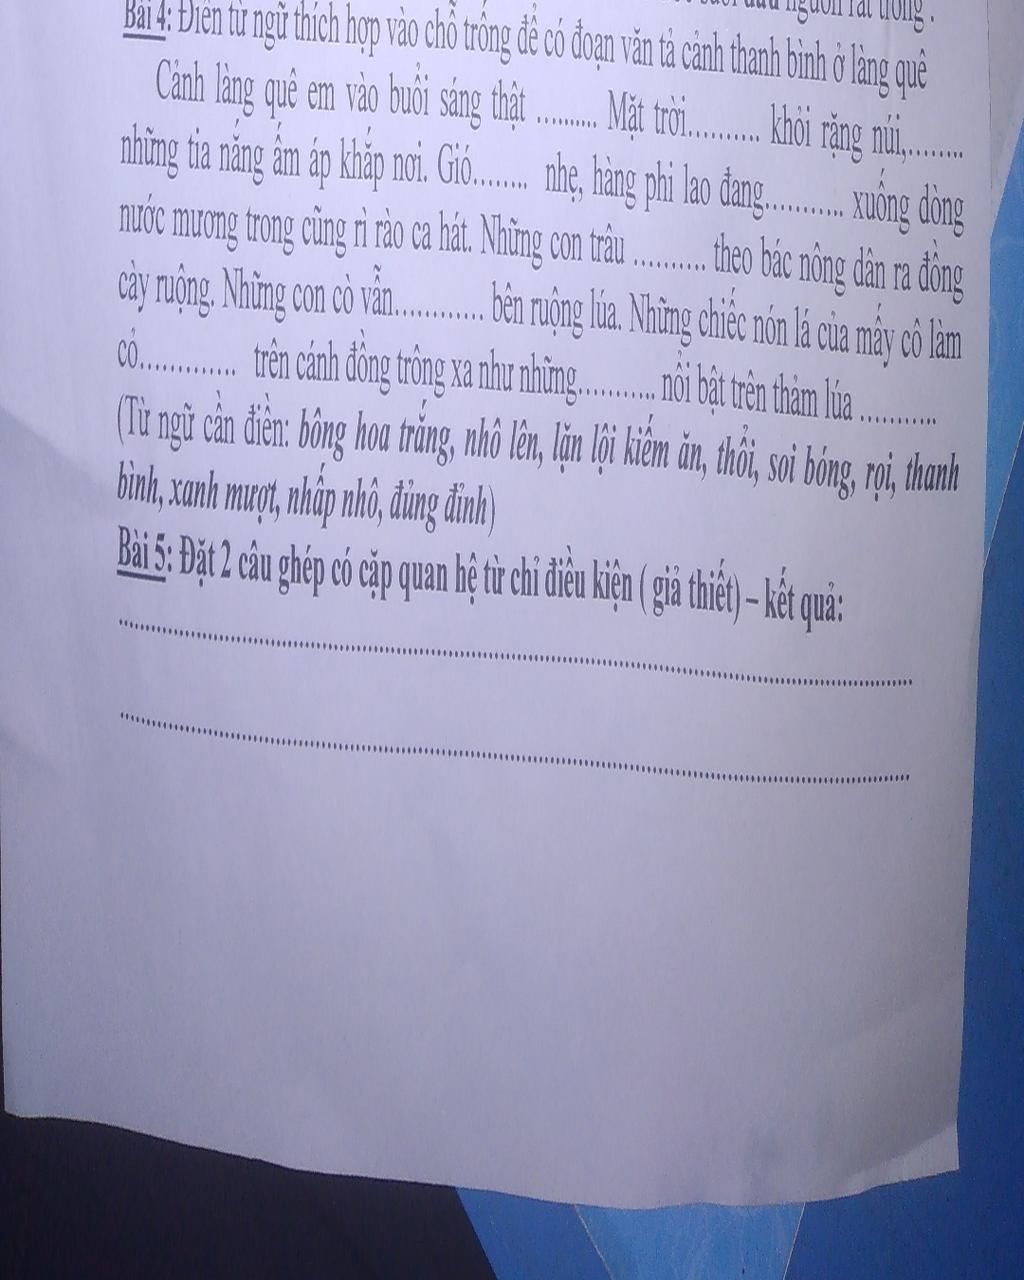 nguồn rất trong .
Bài 4: Điền từ ngữ thích hợp vào chỗ trống để có đoạn văn tả cảnh thanh bình ở làng quê
Cảnh làng quê em vào buổi sáng thật .......... Mặt trời.......... khỏi rặng núi,........
những tia nắng ấm áp khắp nơi. Gió........ nhẹ, hàng phi lao đang........... xuống dòng
nước mương trong cũng rì rào ca hát. Những con trâu .......... theo bác nông dân ra đồng
cày ruộng. Những con cò vẫn............ bên ruộng lúa. Những chiếc nón lá của mấy cô làm
cỏ............. trên cánh đồng trông xa như những........... nổi bật trên thảm lúa ...........
(Từ ngữ cần điền: bông hoa trắng, nhô lên, lặn lội kiếm ăn, thổi, soi bóng, rọi, thanh
bình, xanh mượt, nhấp nhô, đủng đỉnh)
Bài 5: Đặt 2 câu ghép có cặp quan hệ từ chỉ điều kiện ( giả thiết) – kết quả: